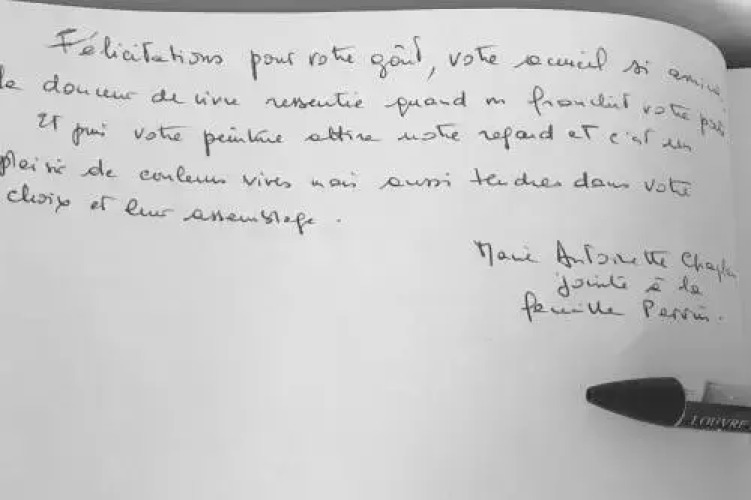 Félicitations pour votre goût, votre accueil si amical,
la douceur de vivre ressentie quand on franchit votre
Et puis votre peinture attire notre regard et c'est un
plaisir de couleurs vives mais aussi tendres dans votre
choix et leur assemblage.
Marie Antoinette
jointe à la
famille Perrin.
LOUVRE